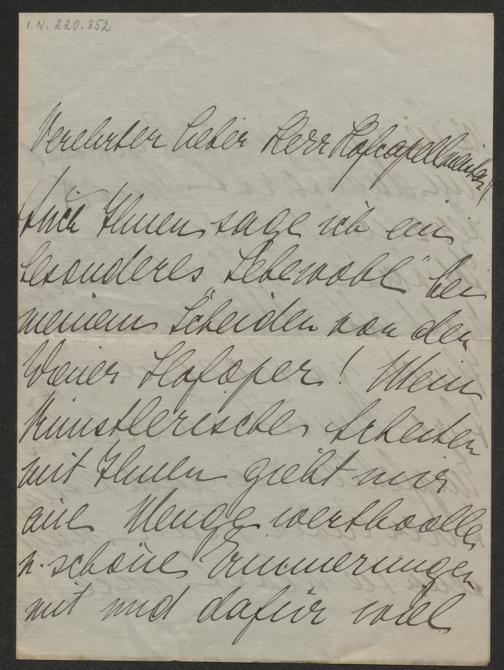 I.N. 220.852
Verehrter lieber Herr Hofcapellmeister!
Auch Ihnen sage ich ein
besonderes "Lebewohl" bei
meinem Scheiden von der
Wiener Hofoper! Mein
künstlerisches Arbeiten
mit Ihnen giebt mir
eine Menge werthvoller
u. schöner Erinnerungen
mit und dafür viel